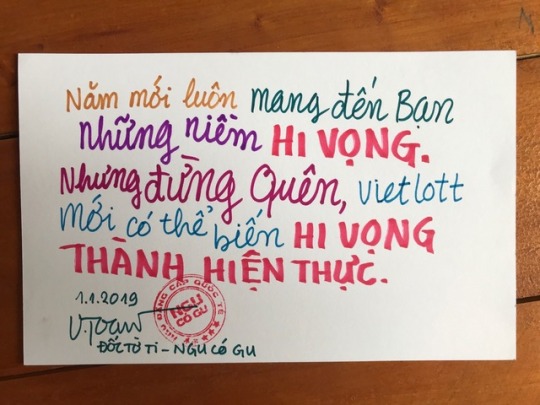 Năm mới luôn mang đến Bạn
những niềm HI VỌNG.
Nhưng đừng Quên, vietlott
mới có thể biến HI VỌNG
THÀNH HIỆN THỰC.
1.1.2019
V.Toan
ĐỐC TỜ TI - NGU CÓ GU
ĐẲNG CẤP QUỐC TẾ
NGU
CÓ GU